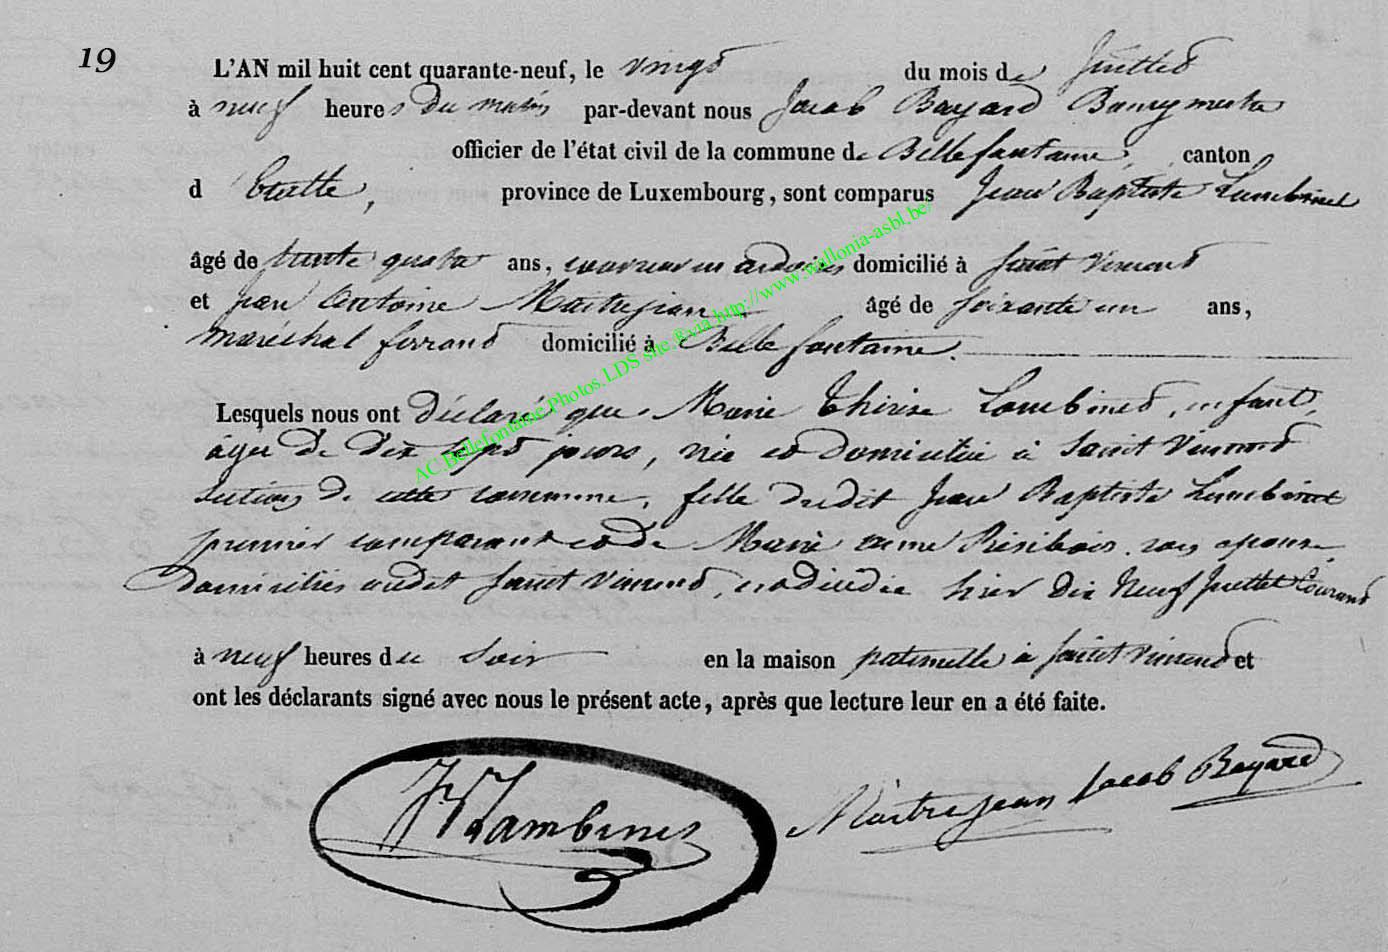 19
L'AN mil huit cent quarante-neuf, le vingt du mois de Juillet
à neuf heures du matin par-devant nous Jacob Bayard Bourgmestre
officier de l'état civil de la commune de Bellefontaine, canton
d'Etalle, province de Luxembourg, sont comparus Jean Baptiste Lambinet
âgé de trente quatre ans, couvreur en ardoises domicilié à Saint Vincent
et Jean Antoine Maitrejean, âgé de soixante un ans,
maréchal ferrant domicilié à Bellefontaine.
Lesquels nous ont déclaré que Marie Thérèse Lambinet, enfant,
âgée de dix sept jours, née et domiciliée à Saint Vincent
section de cette commune, fille dudit Jean Baptiste Lambinet
premier comparant et de Marie Résibois, son épouse
domiciliés audit Saint Vincent, est décédée hier dix neuf Juillet Courant
à neuf heures du soir en la maison paternelle à Saint Vincent et
ont les déclarants signé avec nous le présent acte, après que lecture leur en a été faite.
Lambinet Maitrejean Jacob Bayard
AC.Bellefontaine.Photos.LDS site &via http://www.wallonia-asbl.be/